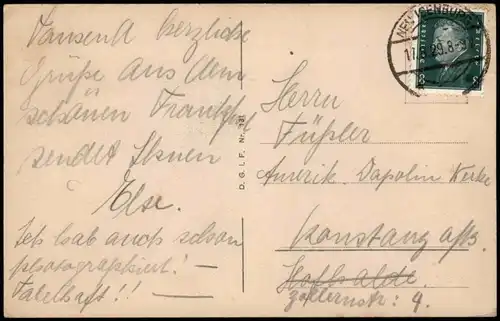 Tausend herzliche
Grüße aus dem
schönen Frankfurt
sendet Ihnen
Else.
Ich hab auch schon
photographiert! —
Fabelhaft!! —
D. G. I. F. Nr. 131
NEU ISENBURG
17.8.29.8-9
8 8
Herrn
Füßler
Amerik. Dapolin Werke
Konstanz a/B.
Hofhalde.
Zollernstr: 9.